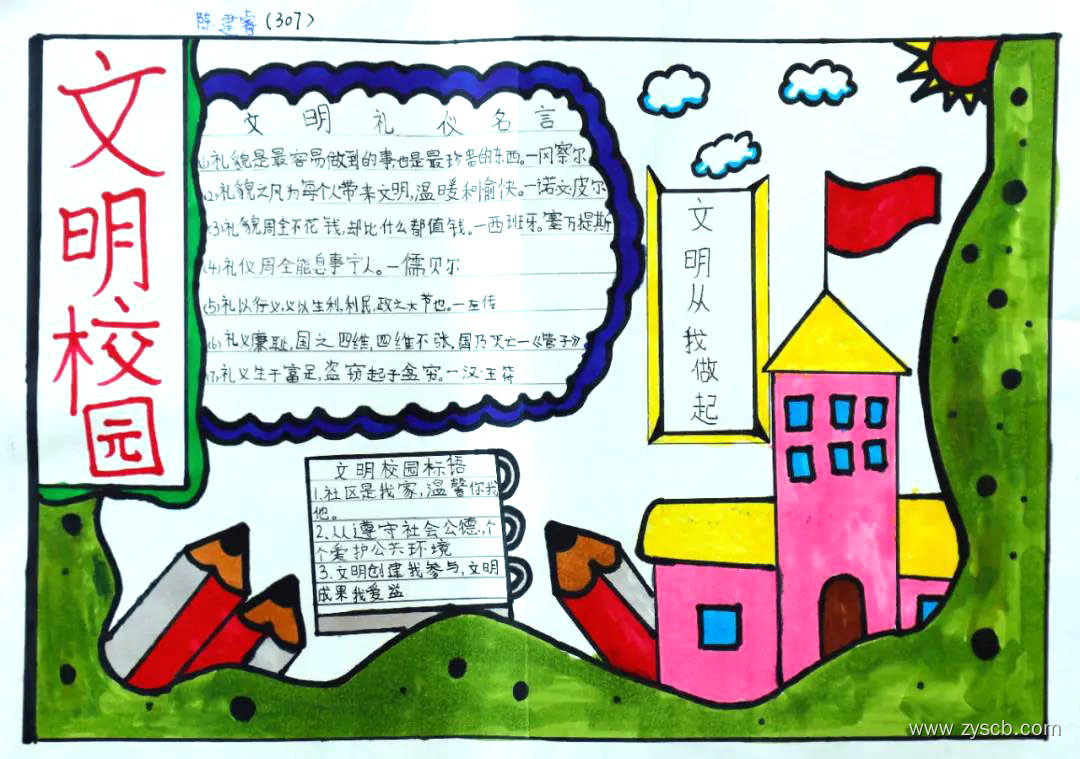 陈君睿(307)
文明校园
文明礼仪名言
(1)礼貌是最容易做到的事也是最珍贵的东西。一冈察尔
(2)礼貌之风为每个人带来文明,温暖和愉快。一诺文皮尔
(3)礼貌周全不花钱,却比什么都值钱。一西班牙。塞万提斯
(4)礼仪周全能息事宁人。一儒贝尔
(5)礼以行义,义以生利,利民,政之大节也。一左传
(6)礼义廉耻,国之四维,四维不张,国乃灭亡一《管子》
(7)礼义生于富足,盗窃起于贫穷。一汉·王符
文明从我做起
文明校园标语
1.社区是我家,温馨你我
他。
2.从遵守社会公德,个
个爱护公共环境
3.文明创建我参与,文明
成果我爱益
www.zyscb.com